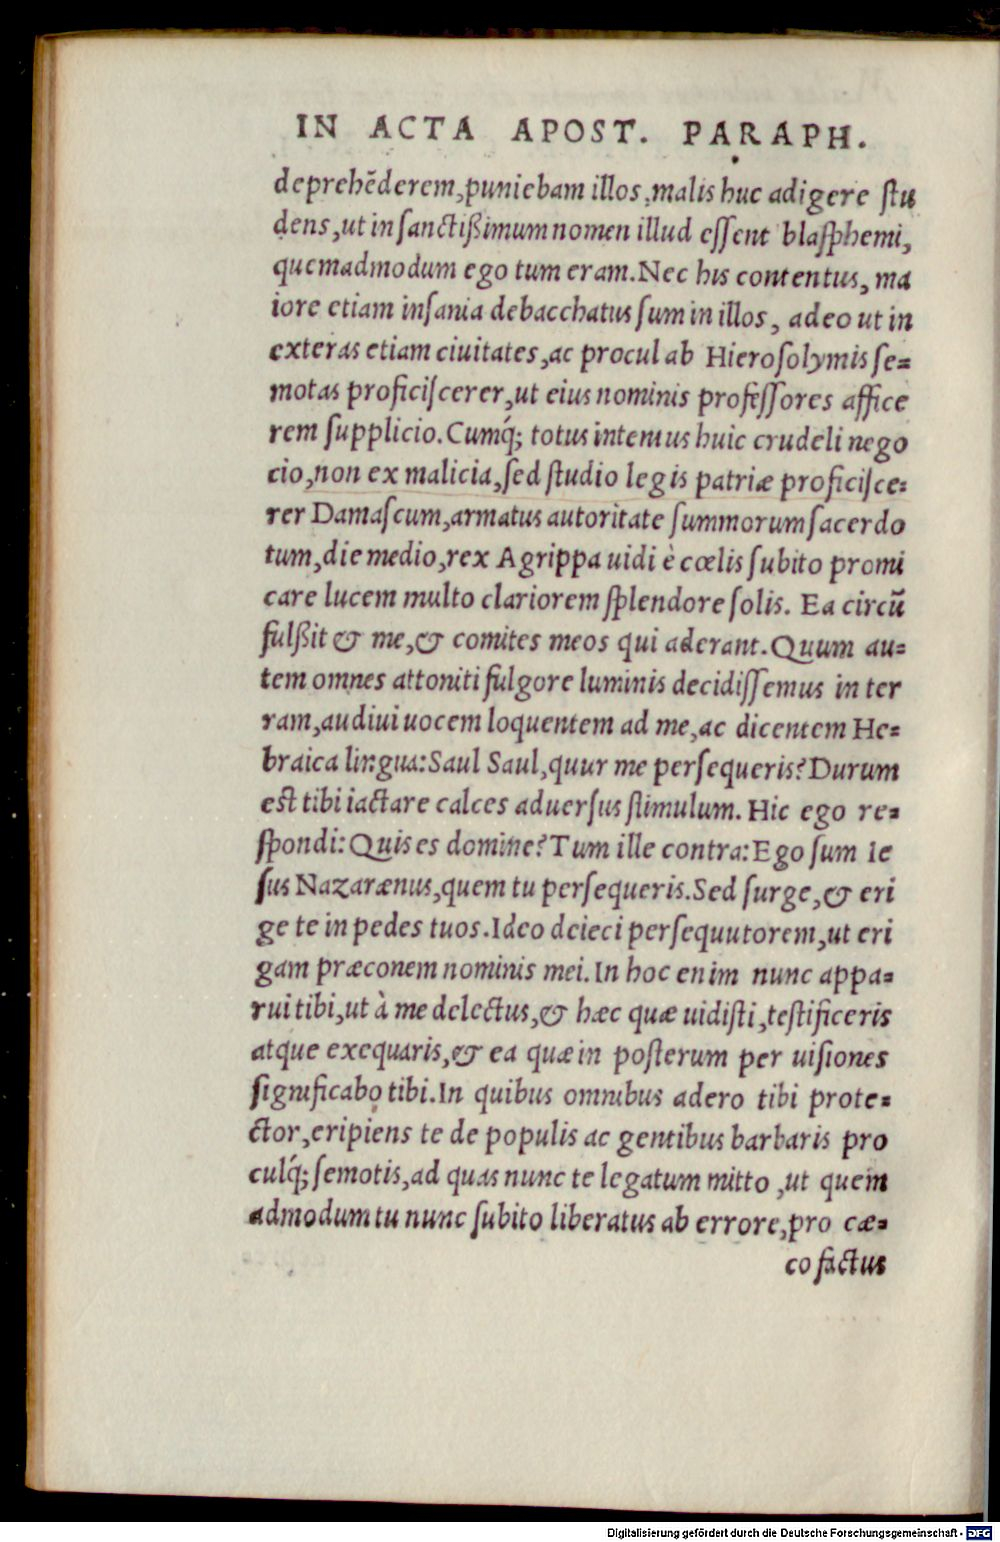 IN ACTA APOST. PARAPH.
deprehēderem, puniebam illos, malis huc adigere ſtu
dens, ut in ſanctißimum nomen illud eſſent blaſphemi,
quemadmodum ego tum eram. Nec his contentus, ma
iore etiam inſania debacchatus ſum in illos, adeo ut in
exteras etiam ciuitates, ac procul ab Hieroſolymis ſe=
motas proficiſcerer, ut eius nominis profeſſores affice
rem ſupplicio. Cumq́; totus intentus huic crudeli nego
cio, non ex malicia, ſed ſtudio legis patriæ proficiſce=
rer Damaſcum, armatus autoritate ſummorum ſacerdo
tum, die medio, rex Agrippa uidi è cœlis ſubito promi
care lucem multo clariorem ſplendore ſolis. Ea circū
fulßit & me, & comites meos qui aderant. Quum au=
tem omnes attoniti fulgore luminis decidiſſemus in ter
ram, audiui uocem loquentem ad me, ac dicentem He=
braica lingua: Saul Saul, quur me perſequeris? Durum
est tibi iactare calces aduerſus ſtimulum. Hic ego re=
ſpondi: Quis es domine? Tum ille contra: Ego ſum Ie
ſus Nazarænus, quem tu perſequeris. Sed ſurge, & eri
ge te in pedes tuos. Ideo deieci perſequutorem, ut eri
gam præconem nominis mei. In hoc enim nunc appa=
rui tibi, ut à me delectus, & hæc quæ uidiſti, teſtificeris
atque exequaris, & ea quæ in poſterum per uiſiones
ſignificabo tibi. In quibus omnibus adero tibi prote=
ctor, eripiens te de populis ac gentibus barbaris pro
culq́; ſemotis, ad quas nunc te legatum mitto, ut quem
admodum tu nunc ſubito liberatus ab errore, pro cæ=
co factus
Digitalisierung gefördert durch die Deutsche Forschungsgemeinschaft - DFG